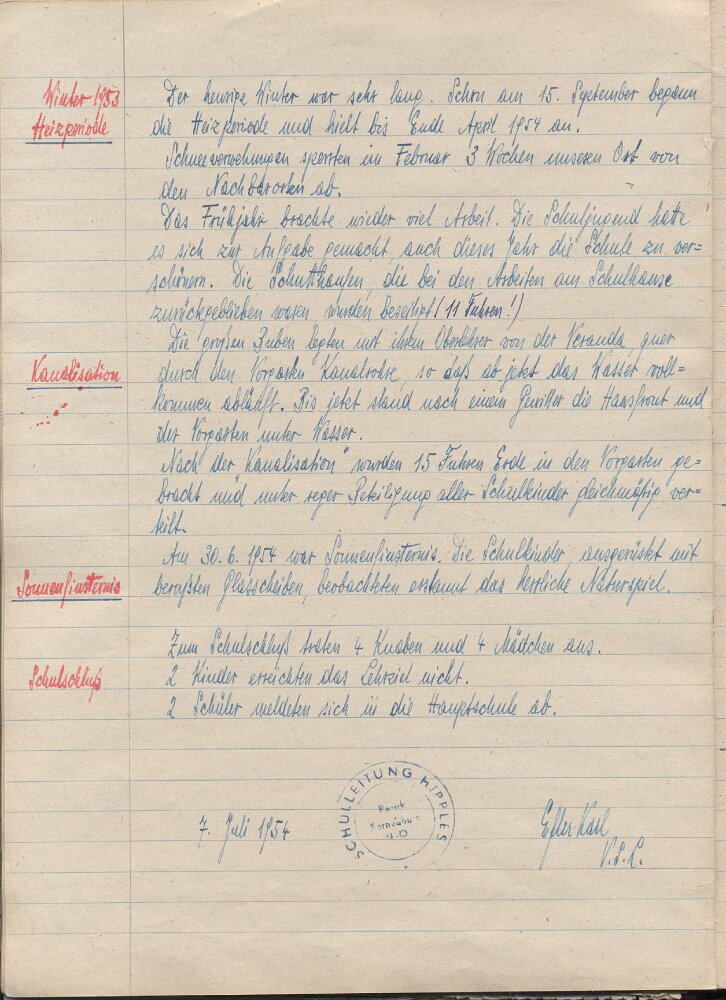 Winter 1953
Heizperiode
Der heurige Winter war sehr lang. Schon am 15. September begann
die Heizperiode und hielt bis Ende April 1954 an.
Schneeverwehungen sperrten im Februar 3 Wochen unseren Ort von
den Nachbarorten ab.
Das Frühjahr brachte wieder viel Arbeit. Die Schuljugend hatte
es sich zur Aufgabe gemacht, auch dieses Jahr die Schule zu ver=
schönern. Die Schutthaufen, die bei den Arbeiten am Schulhause
zurückgeblieben waren wurden beseitigt (11 Fuhren!)
Die großen Buben legten mit ihrem Oberlehrer von der Veranda, quer
Kanalisation
durch den Vorgarten Kanalrohre, so daß ab jetzt das Wasser voll=
kommen abläuft. Bis jetzt stand nach einem Gewitter die Hausfront und
der Vorgarten unter Wasser.
Nach der „Kanalisation" wurden 15 Fuhren Erde in den Vorgarten ge=
bracht und unter reger Beteiligung aller Schulkinder gleichmäßig ver=
teilt.
Am 30. 6. 1954 war Sonnenfinsternis. Die Schulkinder, ausgerüstet mit
Sonnenfinsternis
berußten Glasscheiben, beobachteten erstaunt das herrliche Naturspiel.
Zum Schulschluß traten 4 Knaben und 4 Mädchen aus.
Schulschluß
2 Kinder erreichten das Lehrziel nicht.
2 Schüler meldeten sich in die Hauptschule ab.
SCHULLEITUNG HIPPLES
Bezirk
Korneuburg
N.Ö
7. Juli 1954
Karl